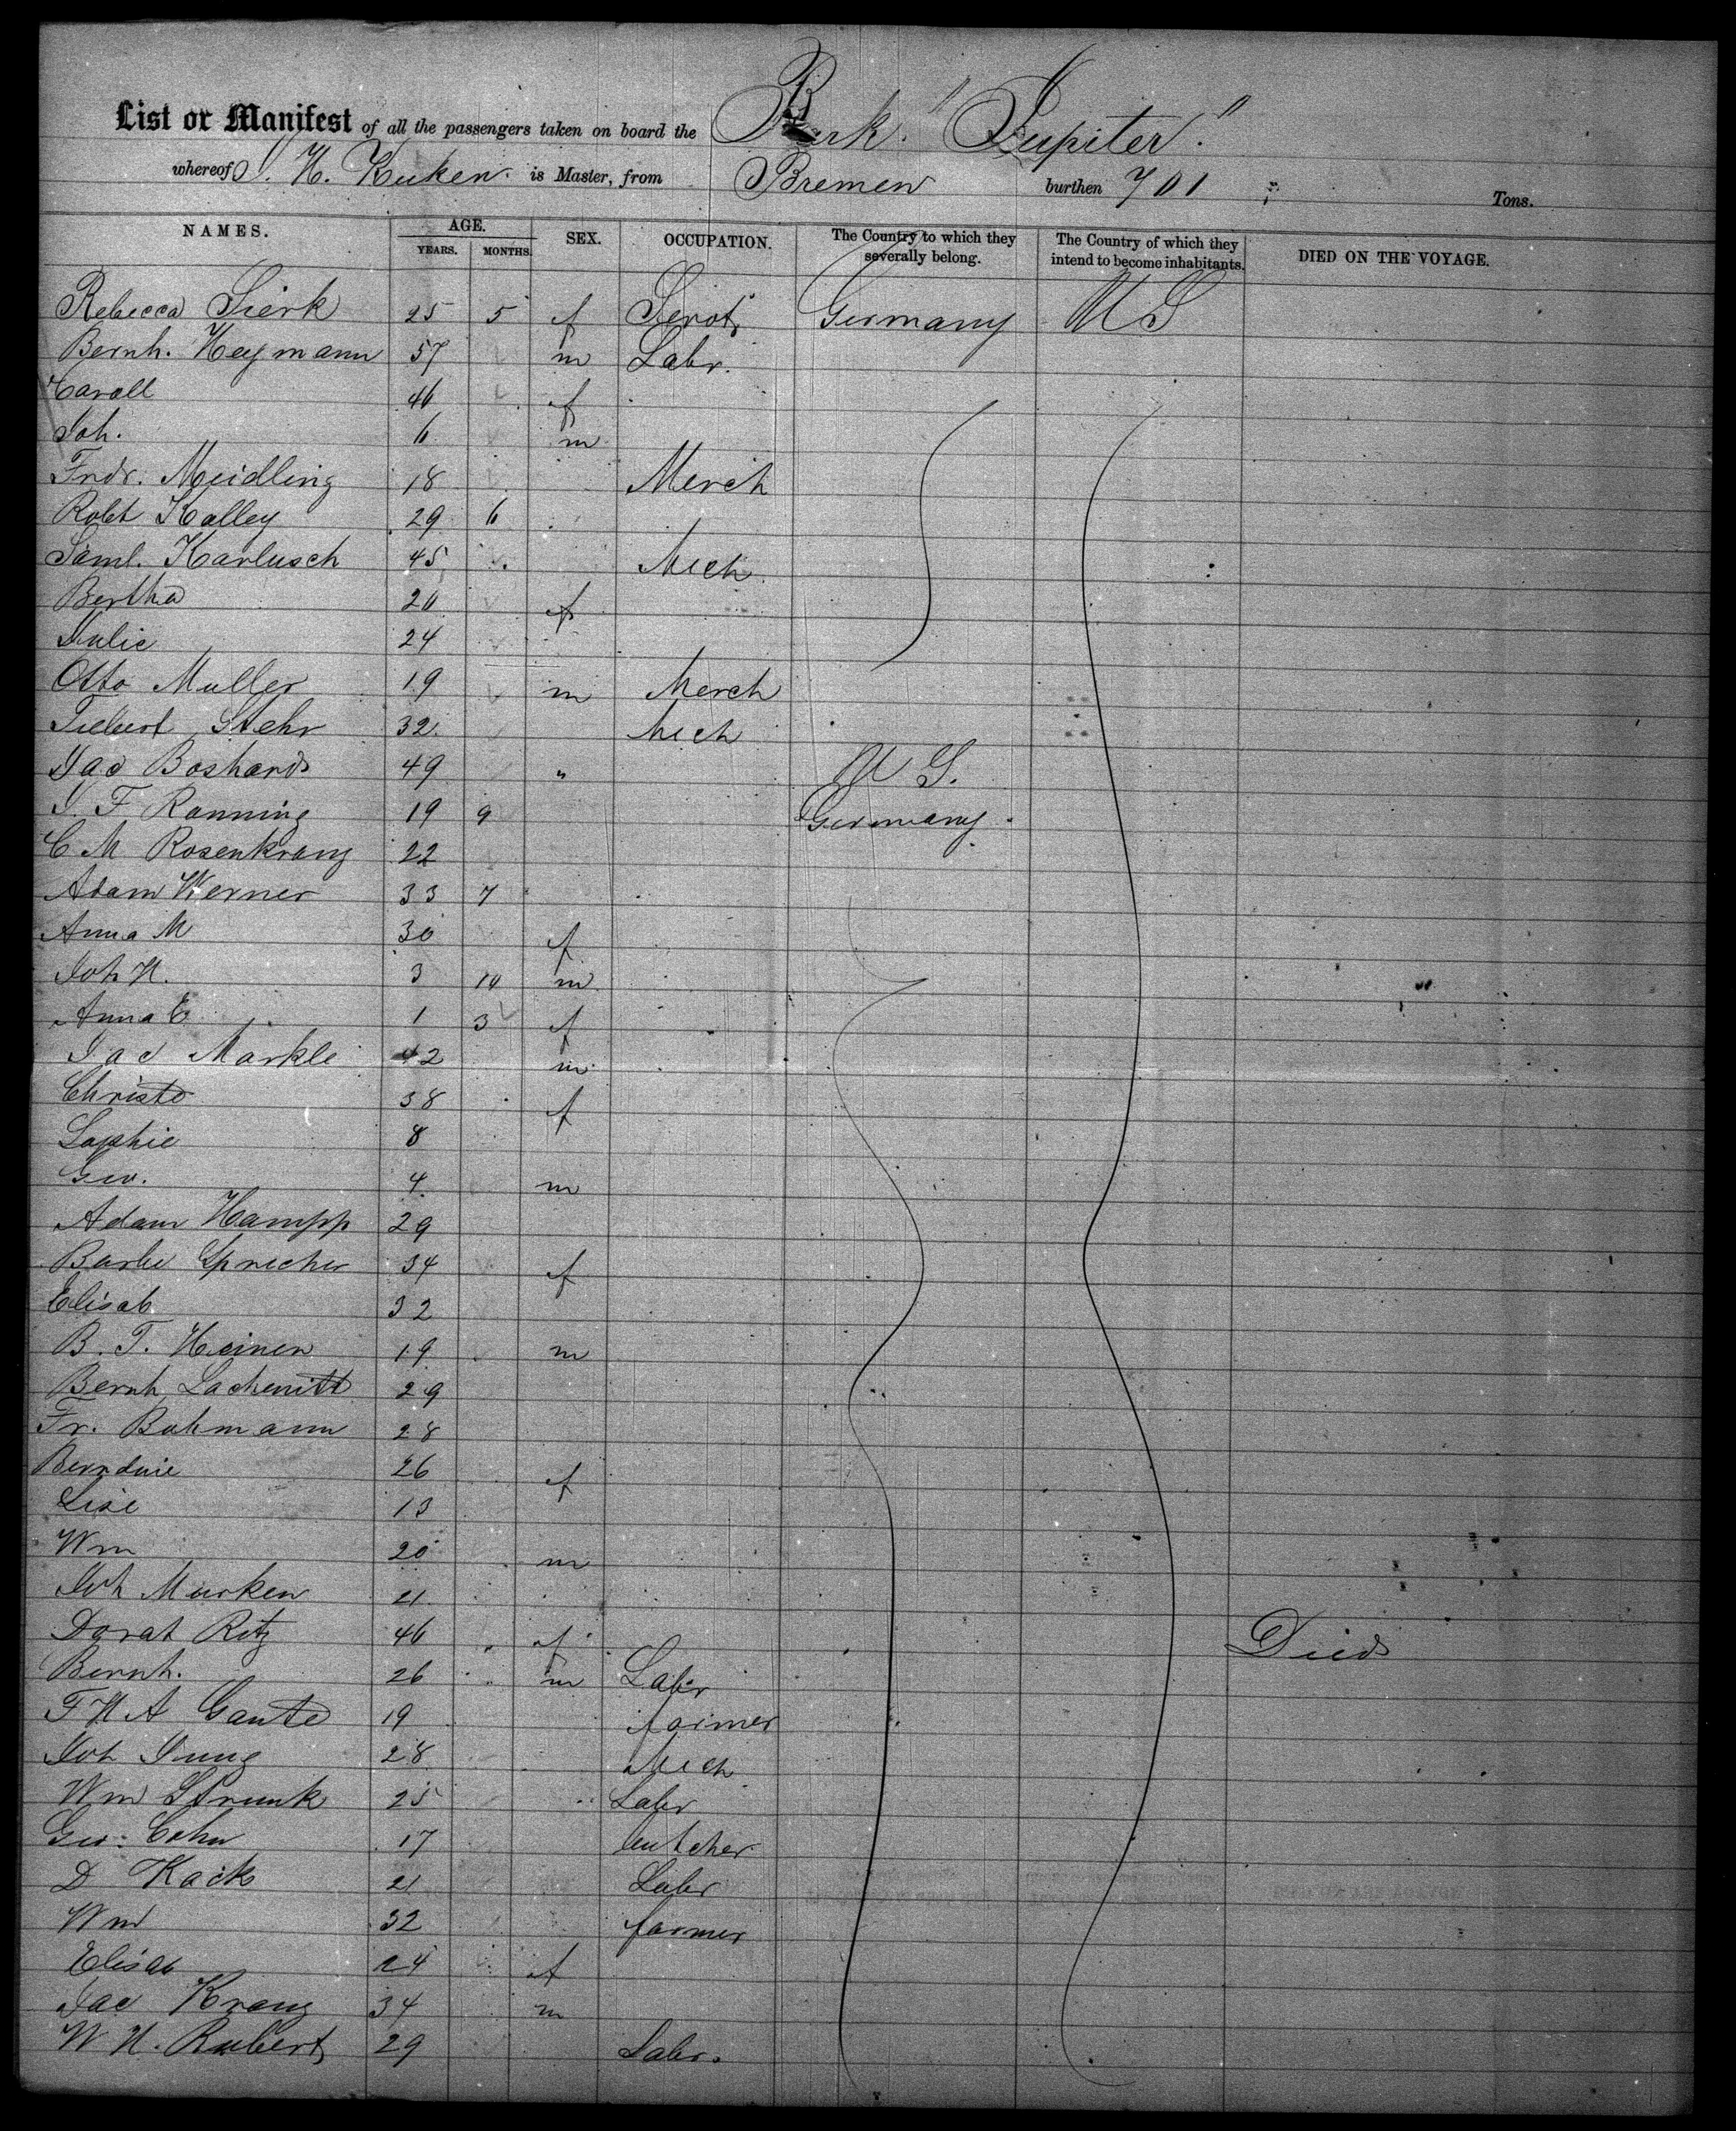 List or Manifest of all the passengers taken on board the Bark "Jupiter."
whereof J. H. Kuken is Master, from Bremen burthen 701 Tons.
NAMES. AGE. YEARS. MONTHS. SEX. OCCUPATION. The Country to which they severally belong. The Country of which they intend to become inhabitants. DIED ON THE VOYAGE.
Rebecca Sierk 25 5 f Servt Germany U S
Bernh. Heymann 57 m Labr.
Caroll 46 f
Joh. 6 m
Fridr. Meidling 18 Merch
Robt Kalley 29 6
Saml. Karlusch 45 Mech
Bertha 20 f
Julie 24
Otto Muller 19 m Merch
Stehr 32 Mech
Jac Boshard 49 " U S.
J. F. Ronning 19 9 Germany
C M Rosenkranz 22
Adam Werner 33 7
Anna M 30 f
Joh H. 3 10 m
Anna E 1 3 f
Jac Markle 42 m
Christe 38 f
Sophie 8
Geo. 4 m
Adam Hampp 29
Barbe Sprecher 34 f
Elisab 32
B. T. Heinen 19 m
Bernh Lachenitt 29
Fr. Bohmann 28
26 f
Lise 13
Wm 20 m
Joh Murken 21
Dorat Ritz 46 f Died
Bernh. 26 m Labr
F H A Gante 19 farmer
Joh Jung 28 Mech
Wm Strunk 25 Labr
Geo. Cohn 17 butcher
D Kack 21 Labr
Wm 32 farmer
Elisab 24 f
Jac Kranz 34 m
W H. Rubert 29 Labr.